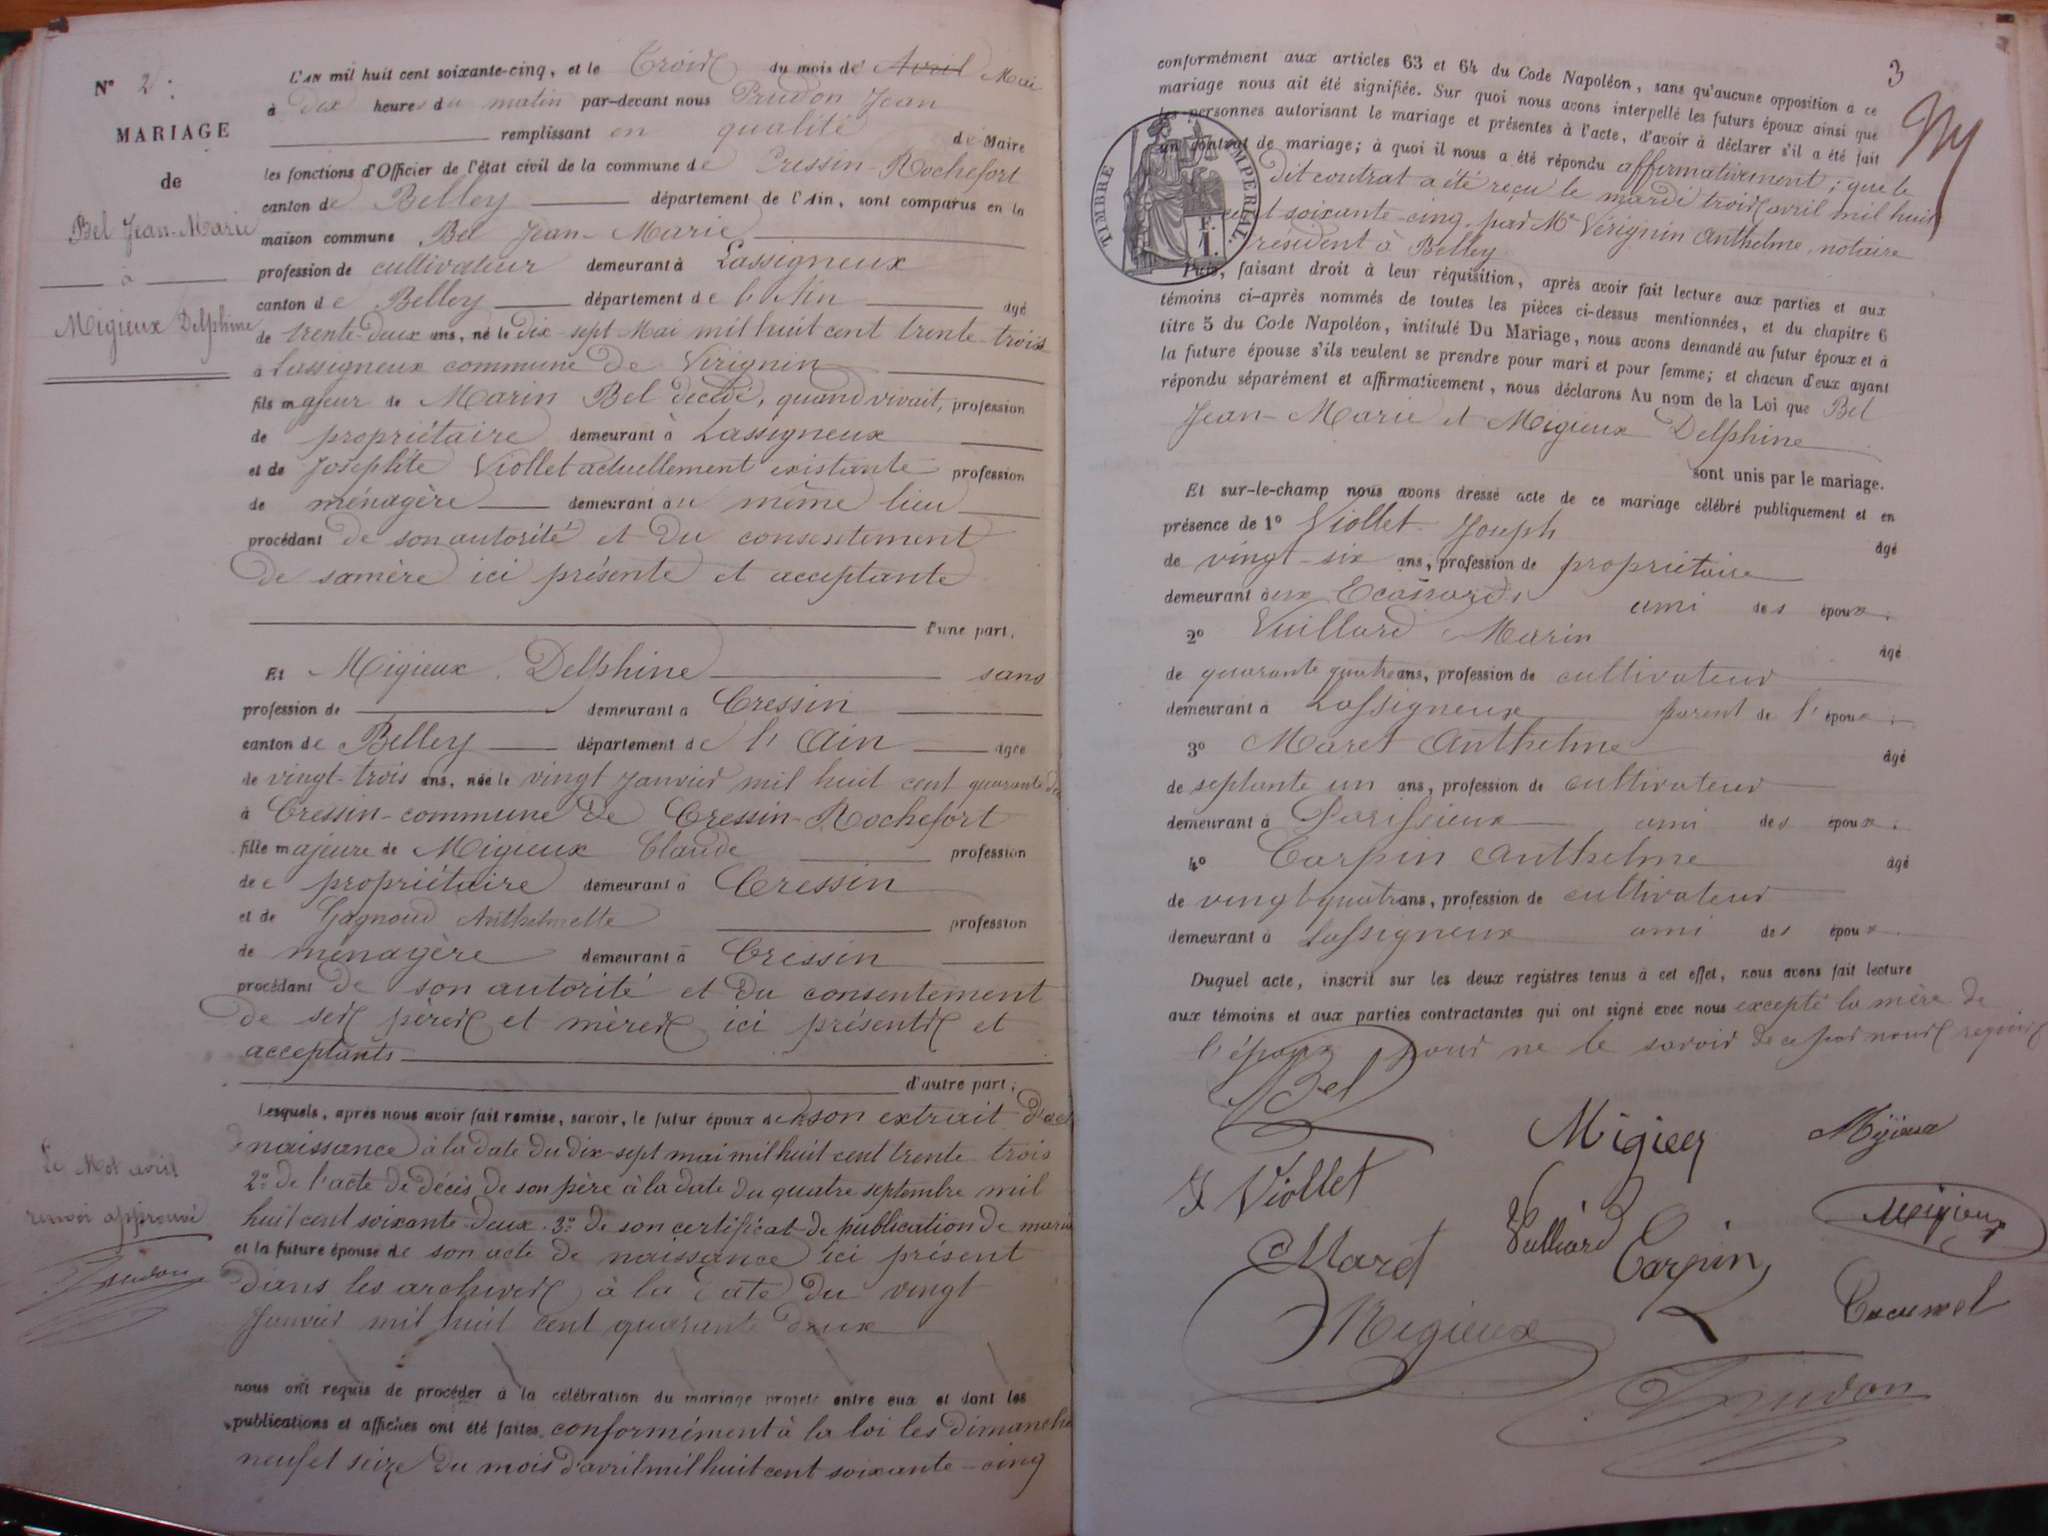 N° 2.
MARIAGE
de
Bel Jean-Marie
à
Migieux Delphine
L'AN mil huit cent soixante-cinq, et le Trois du mois de Avril Mai
à dix heures du matin par-devant nous Prudon Jean
remplissant en qualité de Maire
les fonctions d'Officier de l'état civil de la commune de Cressin-Rochefort
canton de Belley département de l'Ain, sont comparus en la
maison commune Bel Jean-Marie
profession de cultivateur demeurant à Lassigneux
canton de Belley département de l'Ain âgé
de trente-deux ans, né le dix-sept Mai mil huit cent trente-trois
à Lassigneux commune de Virignin
fils majeur de Marin Bel décédé, quand vivait, profession
de propriétaire demeurant à Lassigneux
et de Josephte Viollet actuellement existante profession
de ménagère demeurant au même lieu
procédant de son autorité et du consentement
de sa mère ici présente et acceptante
l'une part,
Et Migieux Delphine sans
profession de demeurant à Cressin
canton de Belley département de l'Ain âgée
de vingt-trois ans, née le vingt Janvier mil huit cent quarante deux
à Cressin-commune de Cressin-Rochefort
fille majeure de Migieux Claude profession
de propriétaire demeurant à Cressin
et de Gagnoud Anthelmette profession
de ménagère demeurant à Cressin
procédant de son autorité et du consentement
de ses pères et mères ici présents et
acceptants
d'autre part;
Lesquels, après nous avoir fait remise, savoir, le futur époux de son extrait d'acte
naissance à la date du dix-sept mai mil huit cent trente-trois
2° de l'acte de décès de son père à la date du quatre septembre mil
huit cent soixante-deux. 3° de son certificat de publication de maria
et la future épouse de son acte de naissance ici présent
dans les archives à la date du vingt
Janvier mil huit cent quarante deux
Le Mot avril
renvoi approuvé
Prudon
nous ont requis de procéder à la célébration du mariage projeté entre eux et dont les
publications et affiches ont été faites conformément à la loi les dimanche
neuf et seize du mois d'avril mil huit cent soixante-cinq
3
conformément aux articles 63 et 64 du Code Napoléon, sans qu'aucune opposition a ce
mariage nous ait été signifiée. Sur quoi nous avons interpellé les futurs époux ainsi que
les personnes autorisant le mariage et présentes à l'acte, d'avoir à déclarer s'il a été fait
un contrat de mariage; à quoi il nous a été répondu affirmativement; que le
dit contrat a été reçu le mardi trois avril mil huit
cent soixante-cinq par Me Vérignin Anthelme, notaire
résident à Belley
TIMBRE IMPERIAL.
F. 1.
Puis, faisant droit à leur réquisition, après avoir fait lecture aux parties et aux
témoins ci-après nommés de toutes les pièces ci-dessus mentionnées, et du chapitre 6
titre 5 du Code Napoléon, intitulé Du Mariage, nous avons demandé au futur époux et à
la future épouse s'ils veulent se prendre pour mari et pour femme; et chacun d'eux ayant
répondu séparément et affirmativement, nous déclarons Au nom de la Loi que Bel
Jean-Marie et Migieux Delphine
sont unis par le mariage.
Et sur-le-champ nous avons dressé acte de ce mariage célébré publiquement et en
présence de 1° Viollet Joseph âgé
de vingt-six ans, profession de propriétaire
demeurant aux Ecassards ami des époux.
2° Vuillard Marin âgé
de quarante quatre ans, profession de cultivateur
demeurant à Lassigneux parent de l'époux.
3° Maret Anthelme âgé
de septante un ans, profession de cultivateur
demeurant à Parissieux ami des époux.
4° Carpin Anthelme âgé
de vingt-quatre ans, profession de cultivateur
demeurant à Lassigneux ami des époux.
Duquel acte, inscrit sur les deux registres tenus à cet effet, nous avons fait lecture
aux témoins et aux parties contractantes qui ont signé avec nous excepté la mère de
l'époux pour ne le savoir de ce par nous requis
Bel
Migieux Migieux
J Viollet Vulliard Migieux
Maret Carpin
Migieux Cocuwel
Prudon